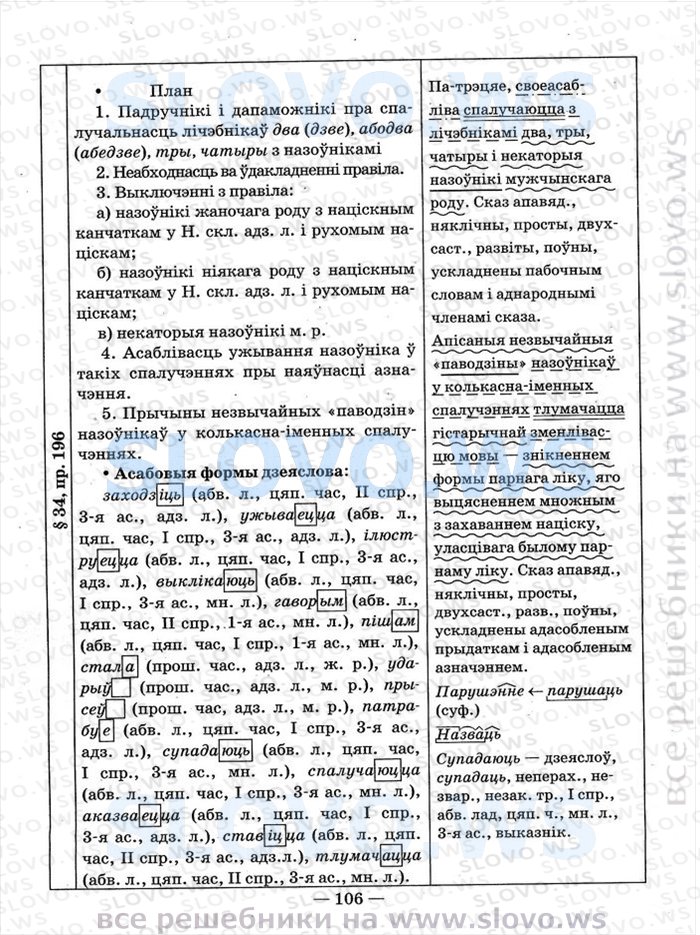 § 34, пр. 196
• План
1. Падручнікі і дапаможнікі пра спа-
лучальнасць лічэбнікаў два (дзве), абодва
(абедзве), тры, чатыры з назоўнікамі
2. Неабходнасць ва ўдакладненні правіла.
3. Выключэнні з правіла:
а) назоўнікі жаночага роду з націскным
канчаткам у Н. скл. адз. л. і рухомым на-
ціскам;
б) назоўнікі ніякага роду з націскным
канчаткам у Н. скл. адз. л. і рухомым на-
ціскам;
в) некаторыя назоўнікі м. р.
4. Асаблівасць ужывання назоўніка ў
такіх спалучэннях пры наяўнасці азна-
чэння.
5. Прычыны незвычайных «паводзін»
назоўнікаў у колькасна-іменных спалу-
чэннях.
• Асабовыя формы дзеяслова:
заходзіць (абв. л., цяп. час, II спр.,
3-я ас., адз. л.), ужываецца (абв. л.,
цяп. час, I спр., 3-я ас., адз. л.), ілюст-
руецца (абв. л., цяп. час, I спр., 3-я ас.,
адз. л.), выклікаюць (абв. л., цяп. час,
I спр., 3-я ас., мн. л.), гаворым (абв. л.,
цяп. час, II спр., 1-я ас., мн. л.), пішам
(абв. л., цяп. час, I спр., 1-я ас., мн. л.),
стала (прош. час., адз. л., ж. р.), уда-
рыў (прош. час, адз. л., м. р.), пры-
сеў (прош. час, адз. л., м. р.), патра-
буе (абв. л., цяп. час, I спр., 3-я ас.,
адз. л.), супадаюць (абв. л., цяп. час,
I спр., 3-я ас., мн. л.), спалучаюцца
(абв. л., цяп. час, I спр., 3-я ас., мн. л.),
аказваецца (абв. л., цяп. час, I спр.,
3-я ас., адз. л.), ставіцца (абв. л., цяп.
час, II спр., 3-я ас., адз.л.), тлумачацца
(абв. л., цяп. час, II спр., 3-я ас., мн. л.).
Па-трэцяе, своеасаб-
ліва спалучаюцца з
лічэбнікамі два, тры,
чатыры і некаторыя
назоўнікі мужчынскага
роду. Сказ апавяд.,
няклічны, просты, двух-
саст., развіты, поўны,
ускладнены пабочным
словам і аднароднымі
членамі сказа.
Апісаныя незвычайныя
«паводзіны» назоўнікаў
у колькасна-іменных
спалучэннях тлумачацца
гістарычнай зменлівас-
цю мовы — знікненнем
формы парнага ліку, яго
выцясненнем множным
з захаваннем націску,
уласцівага былому пар-
наму ліку. Сказ апавяд.,
няклічны, просты,
двухсаст., разв., поўны,
ускладнены адасобленым
прыдаткам і адасобленым
азначэннем.
Парушэнне ← парушаць
(суф.)
Назваць
Супадаюць — дзеяслоў,
супадаць, неперах., не-
звар., незак. тр., I спр.,
абв. лад, цяп. ч., мн. л.,
3-я ас., выказнік.
— 106 —
все решебники на www.slovo.ws
все решебники на www.slovo.ws
SLOVO.WS
SLOVO.WS
SLOVO.WS
SLOVO.WS